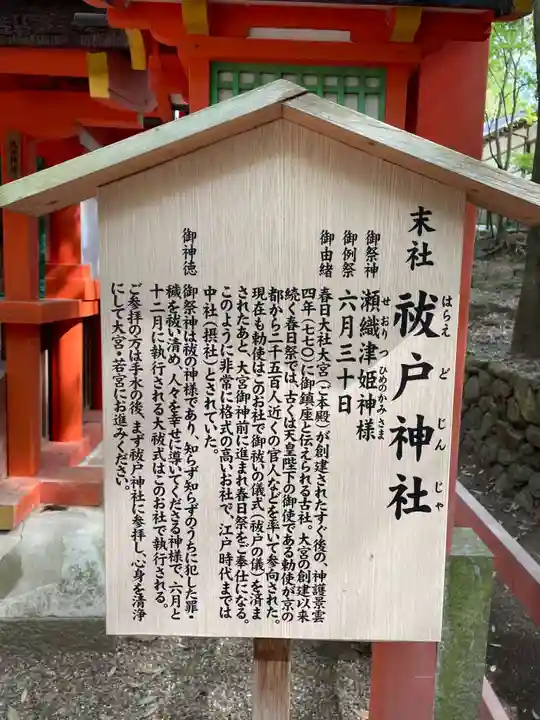 末社
祓戸神社
はらえどじんじゃ
御祭神
瀬織津姫神様
せおりつひめのかみさま
御例祭
六月三十日
御由緒
春日大社大宮(ご本殿)が創建されたすぐ後の、神護景雲
四年(七七〇)に御鎮座と伝えられる古社。大宮の創建以来
続く春日祭では、古くは天皇陛下の御使である勅使が京の
都から二千五百人近くの官人などを率いて参向された。
現在も勅使はこのお社で御祓いの儀式(祓戸の儀)を済ま
されたあと、大宮御神前に進まれ春日祭をご奉仕になる。
このように非常に格式の高いお社で、江戸時代までは
中社(摂社)とされていた。
御神徳
御祭神は祓の神様であり、知らず知らずのうちに犯した罪・
穢を祓い清め、人々を幸せに導いてくださる神様で、六月と
十二月に執行される大祓式はこのお社で執行される。
ご参拝の方は手水の後、まず祓戸神社に参拝し、心身を清浄
にして大宮・若宮にお進みください。